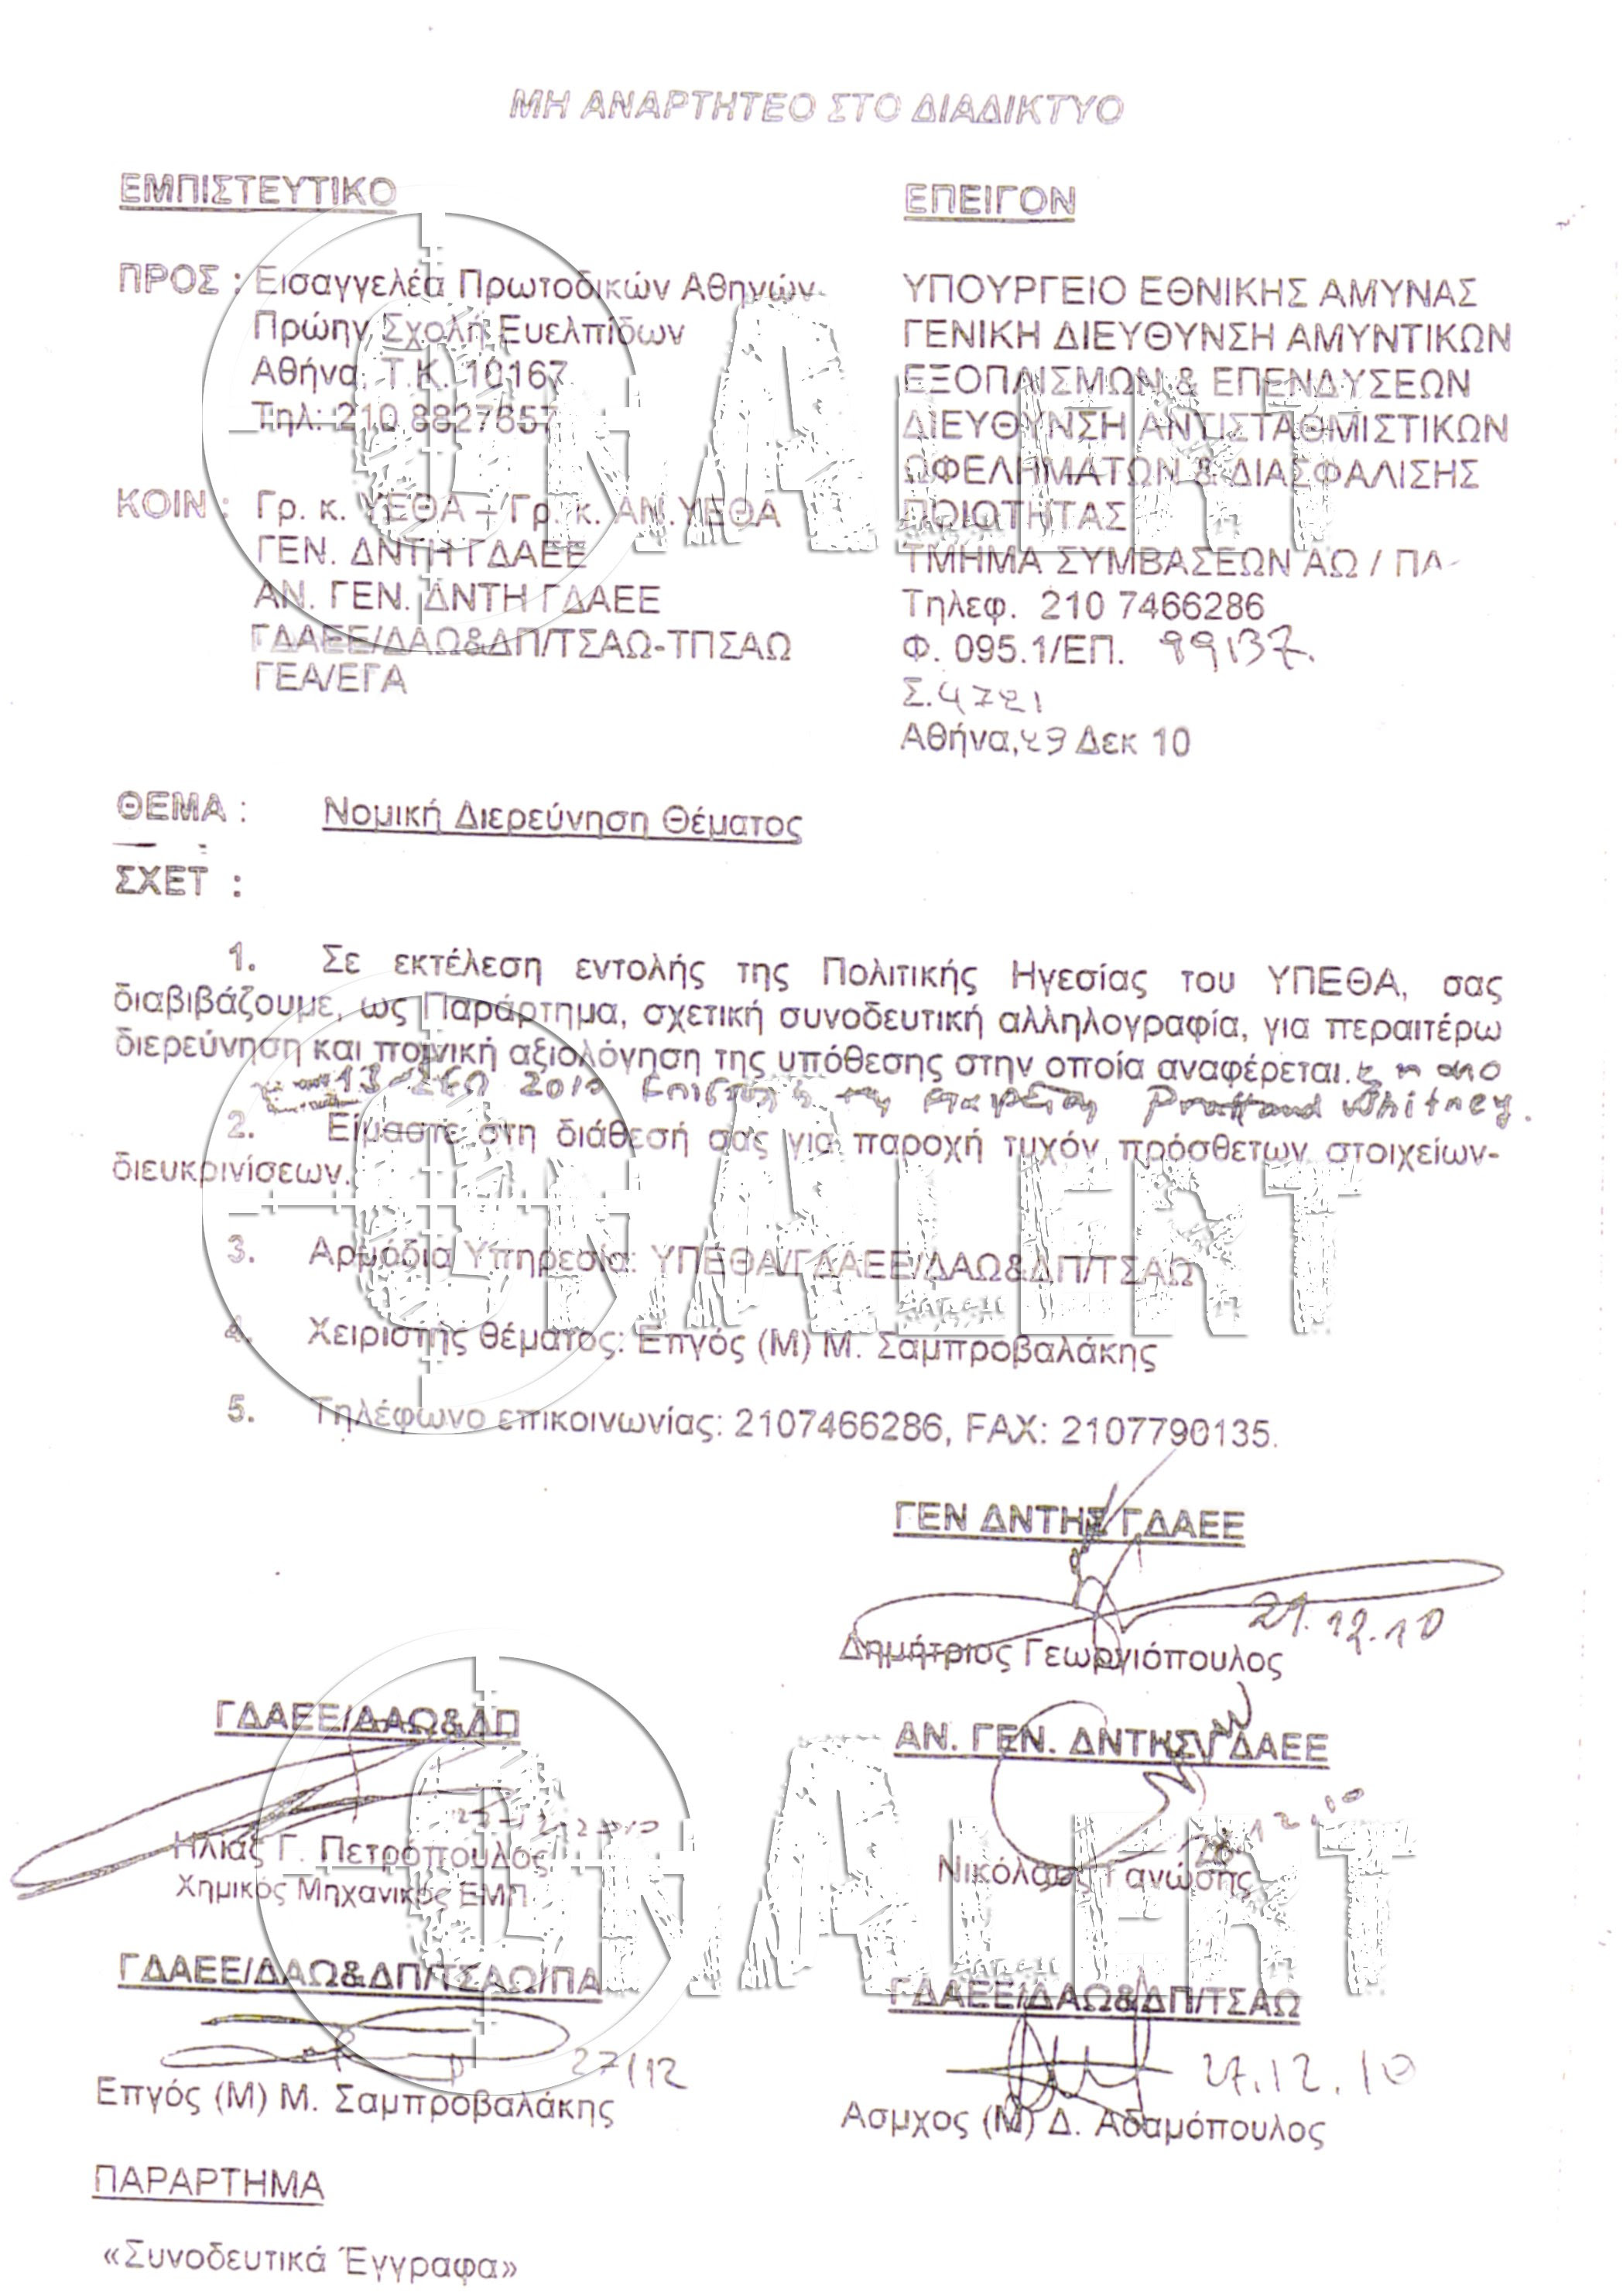 ΜΗ ΑΝΑΡΤΗΤΕΟ ΣΤΟ ΔΙΑΔΙΚΤΥΟ
ΕΜΠΙΣΤΕΥΤΙΚΟ
ΕΠΕΙΓΟΝ
ΠΡΟΣ : Εισαγγελέα Πρωτοδικών Αθηνών
Πρώην Σχολή Ευελπίδων
Αθήνα, Τ.Κ. 10167
Τηλ: 210 8827657
ΚΟΙΝ : Γρ. κ. ΥΕΘΑ – Γρ. κ. ΑΝ.ΥΕΘΑ
ΓΕΝ. ΔΝΤΗ ΓΔΑΕΕ
ΑΝ. ΓΕΝ. ΔΝΤΗ ΓΔΑΕΕ
ΓΔΑΕΕ/ΔΑΩ&ΔΠ/ΤΣΑΩ-ΤΠΣΑΩ
ΓΕΑ/ΕΓΑ
ΥΠΟΥΡΓΕΙΟ ΕΘΝΙΚΗΣ ΑΜΥΝΑΣ
ΓΕΝΙΚΗ ΔΙΕΥΘΥΝΣΗ ΑΜΥΝΤΙΚΩΝ
ΕΞΟΠΛΙΣΜΩΝ & ΕΠΕΝΔΥΣΕΩΝ
ΔΙΕΥΘΥΝΣΗ ΑΝΤΙΣΤΑΘΜΙΣΤΙΚΩΝ
ΩΦΕΛΗΜΑΤΩΝ & ΔΙΑΣΦΑΛΙΣΗΣ
ΠΟΙΟΤΗΤΑΣ
ΤΜΗΜΑ ΣΥΜΒΑΣΕΩΝ ΑΩ / ΠΑ
Τηλεφ. 210 7466286
Φ. 095.1/ΕΠ. 99137.
Σ.4721
Αθήνα, 29 Δεκ 10
ΘΕΜΑ : Νομική Διερεύνηση Θέματος
ΣΧΕΤ :
1. Σε εκτέλεση εντολής της Πολιτικής Ηγεσίας του ΥΠΕΘΑ, σας
διαβιβάζουμε, ως Παράρτημα, σχετική συνοδευτική αλληλογραφία, για περαιτέρω
διερεύνηση και ποινική αξιολόγηση της υπόθεσης στην οποία αναφέρεται. η από
13 Σεπ 2010 επιστολή της εταιρείας Pratt and Whitney.
2. Είμαστε στη διάθεσή σας για παροχή τυχόν πρόσθετων στοιχείων-
διευκρινίσεων.
3. Αρμόδια Υπηρεσία: ΥΠΕΘΑ/ΓΔΑΕΕ/ΔΑΩ&ΔΠ/ΤΣΑΩ
4. Χειριστής θέματος: Επγός (Μ) Μ. Σαμπροβαλάκης
5. Τηλέφωνο επικοινωνίας: 2107466286, FAX: 2107790135.
ΓΕΝ ΔΝΤΗΣ ΓΔΑΕΕ
21.12.10
Δημήτριος Γεωργιόπουλος
ΓΔΑΕΕ/ΔΑΩ&ΔΠ
Ηλίας Γ. Πετρόπουλος
Χημικός Μηχανικός ΕΜΠ
ΑΝ. ΓΕΝ. ΔΝΤΗΣ ΓΔΑΕΕ
Νικόλαος Γανώσης
ΓΔΑΕΕ/ΔΑΩ&ΔΠ/ΤΣΑΩ/ΠΑ
27/12
Επγός (Μ) Μ. Σαμπροβαλάκης
ΓΔΑΕΕ/ΔΑΩ&ΔΠ/ΤΣΑΩ
27.12.10
Ασμχος (Μ) Δ. Αδαμόπουλος
ΠΑΡΑΡΤΗΜΑ
«Συνοδευτικά Έγγραφα»
ONALERT
ONALERT
ONALERT